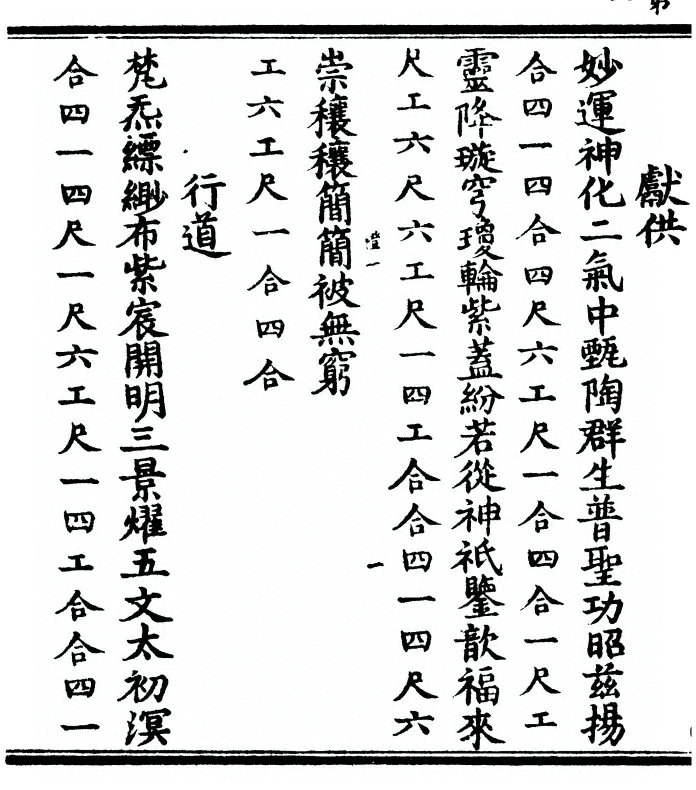 獻供
妙運神化二氣中甄陶群生普聖功昭兹揚
合四一四合四尺六工尺一合四合一尺工
靈降璇穹瓊輪紫蓋紛若從神祇鑒歆福來
尺工六尺六工尺一四工合合四一四尺六
澄一
一
崇穰穰簡簡被無窮
工六工尺一合四合
行道
梵炁縹緲布紫宸開明三景燿五文太初溟
合四一四尺一尺六工尺一四工合合四一